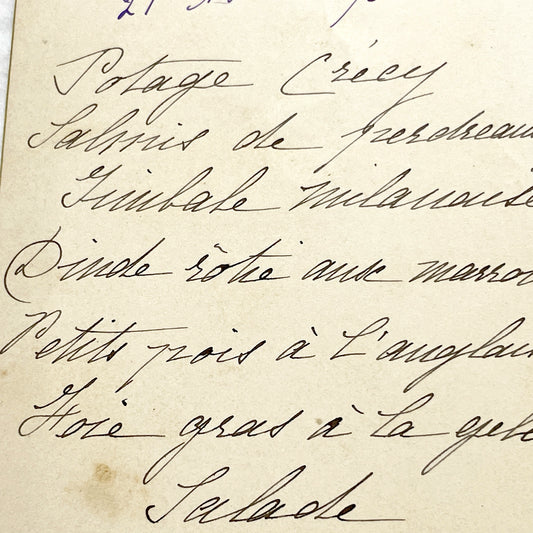 21
Potage Crécy
Salmis de perdreau
Timbale milanaise
Dinde rôtie aux marro
Petits pois à l'anglai
Foie gras à la gel
Salade